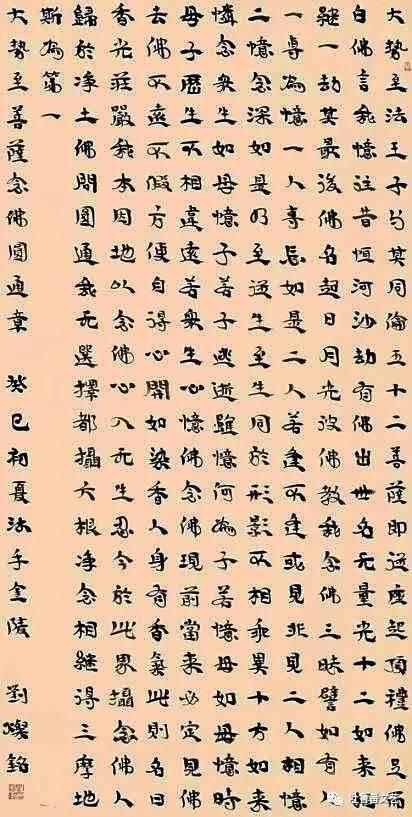 大勢至法王子与其同倫五十二菩薩即從座起頂禮佛足而
白佛言我憶往昔恒河沙劫有佛出世名无量光十二如來相
繼一劫其最後佛名超日月光彼佛教我念佛三昧譬如有人
一專為憶一人專忘如是二人若逢不逢或見非見二人相憶
二憶念深如是乃至從生至生同於形影不相乖異十方如來
憐念衆生如母憶子若子逃逝雖憶何為子若憶母如母憶時
母子歷生不相違遠若衆生心憶佛念佛現前當來必定見佛
去佛不遠不假方便自得心開如染香人身有香氣此則名曰
香光莊嚴我本因地以念佛心入无生忍今於此界攝念佛人
歸於净土佛問圓通我无選擇都攝六根净念相繼得三摩地
斯為第一
大勢至菩薩念佛圓通章 癸巳初夏沐手金陵 劉燦銘